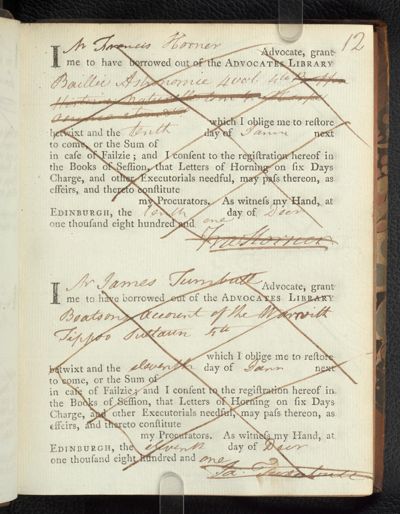 12
I Mr Francis Horner Advocate, grant
me to have borrowed out of the ADVOCATES LIBRARY
Baillie Astronomie 4 vol. 4to
which I oblige me to reſtore
betwixt and the tenth day of Janry next
to come, or the Sum of
in caſe of Failzie; and I conſent to the regiſtration hereof in
the Books of Seſſion, that Letters of Horning on ſix Days
Charge, and other Executorials needful, may paſs thereon, as
effeirs, and thereto conſtitute
my Procurators. As witneſs my Hand, at
EDINBURGH, the tenth day of Decr
one thouſand eight hundred and one
Fra Horner
I Mr James Turnbull Advocate, grant
me to have borrowed out of the ADVOCATES LIBRARY
Beatsons account of the War with
Tippoo Sultaun 4to
which I oblige me to reſtore
betwixt and the eleventh day of Janry next
to come, or the Sum of
in caſe of Failzie; and I conſent to the regiſtration hereof in
the Books of Seſſion, that Letters of Horning, on ſix Days
Charge, and other Executorials needful, may paſs thereon, as
effeirs, and thereto conſtitute
my Procurators. As witneſs my Hand, at
EDINBURGH, the eleventh day of Decr
one thouſand eight hundred and one
Ja. Turnbull